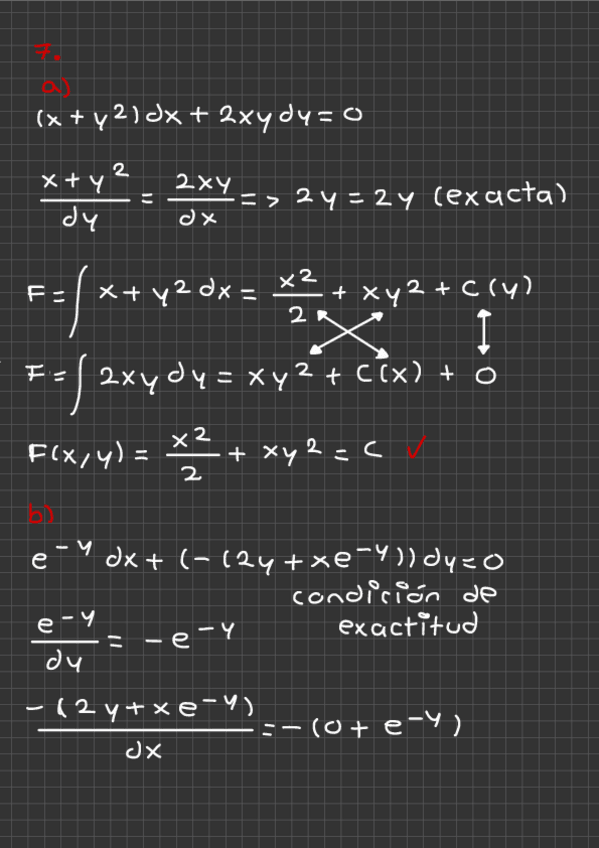 7.
a)
(x + y²) dx + 2xy dy = 0
x + y² / dy = 2xy / dx => 2y = 2y (exacta)
F = ∫ x + y² dx = x²/2 + xy² + C(y)
F = ∫ 2xy dy = xy² + C(x) + 0
F(x,y) = x²/2 + xy² = C ✓
b)
e^-y dx + (-(2y + xe^-y)) dy = 0
condición de
exactitud
e^-y / dy = -e^-y
-(2y + xe^-y) / dx = -(0 + e^-y)